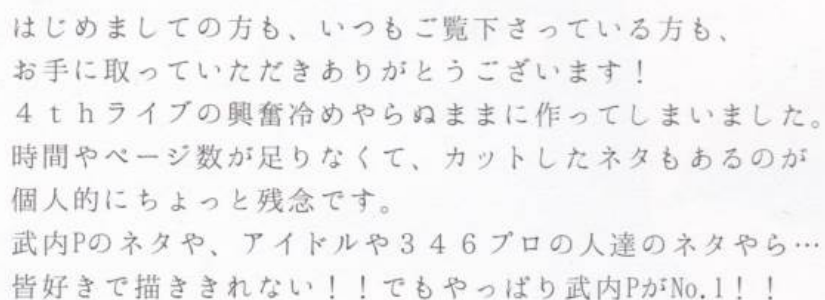 はじめましての方も、いつもご覧下さっている方も、
お手に取っていただきありがとうございます！
４ｔｈライブの興奮冷めやらぬままに作ってしまいました。
時間やページ数が足りなくて、カットしたネタもあるのが
個人的にちょっと残念です。
武内Pのネタや、アイドルや３４６プロの人達のネタやら…
皆好きで描ききれない！！でもやっぱり武内PがNo.1！！